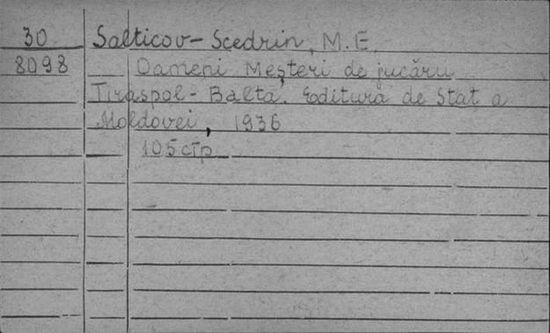 30 Salticov-Scedrin, M.E.
8098 Oameni Meșteri de jucării
Tiraspol-Balta. Editura de Stat a
Moldovei, 1936
105 стр